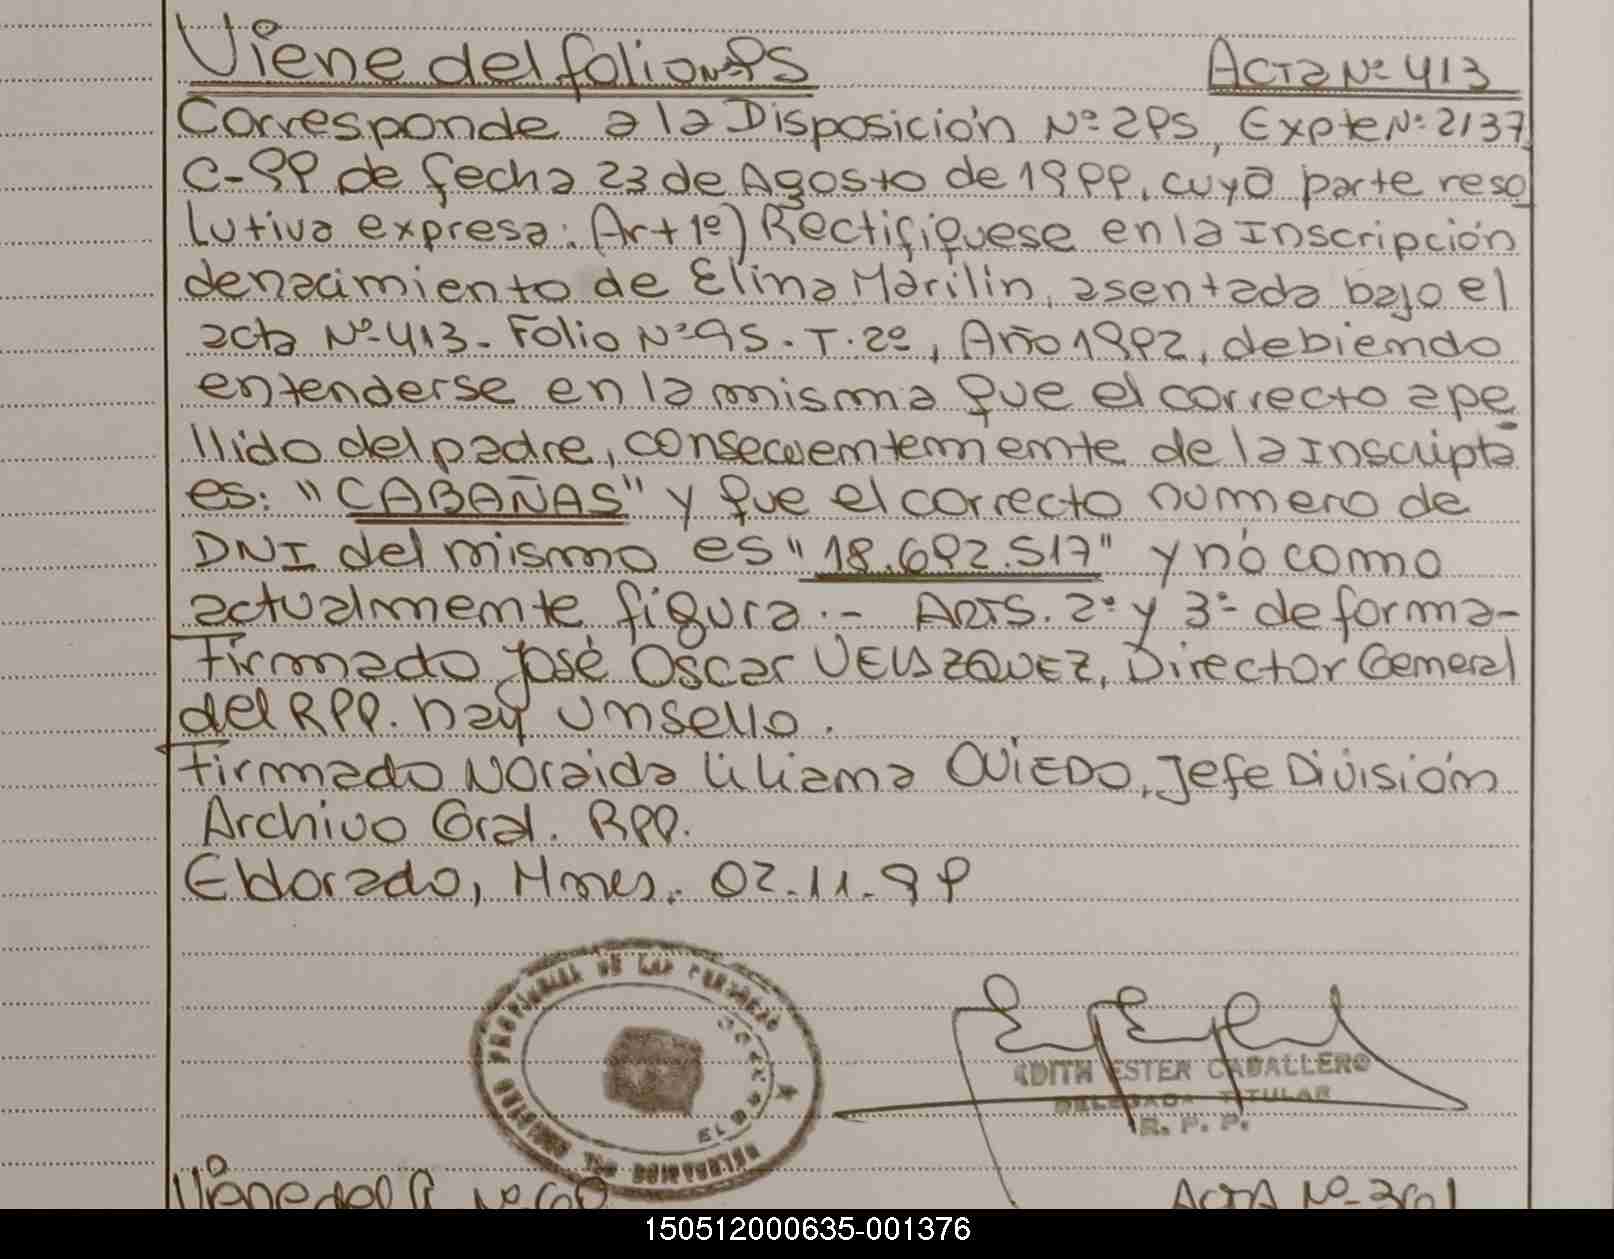 Viene del folio Nº 95 ACTA Nº 413
Corresponde a la Disposición Nº 295, Expte Nº 2137
C-99 de fecha 23 de Agosto de 1999, cuya parte reso
lutiva expresa: Art 1º) Rectifiquese en la Inscripción
de nacimiento de Elina Marilin, asentada bajo el
acta Nº 413. Folio Nº 95. T. 2º, Año 1992, debiendo
entenderse en la misma que el correcto ape
llido del padre, consecuentemente de la Inscripta
es: "CABAÑAS" y que el correcto numero de
DNI del mismo es "18.692.517" y no como
actualmente figura.- ARTS. 2º y 3º de forma-
Firmado José Oscar VELAZQUEZ, Director General
del RPP. hay un sello.
Firmado Noraida Liliana OVIEDO, Jefe División
Archivo Gral. RPP.
Eldorado, Mnes. 02-11-99
PROVINCIAL DE LAS PERSONAS
DELEGACION DEL REGISTRO
ELDORADO
EDITH ESTER CABALLERO
DELEGADA TITULAR
R. P. P.
Viene del Nº 60 ACTA Nº 361
150512000635-001376